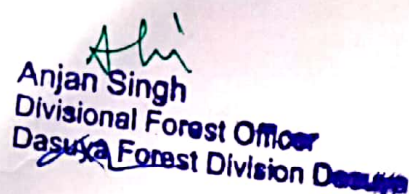 Anjan Singh
Divisional Forest Officer
Dasuya Forest Division Dasuya